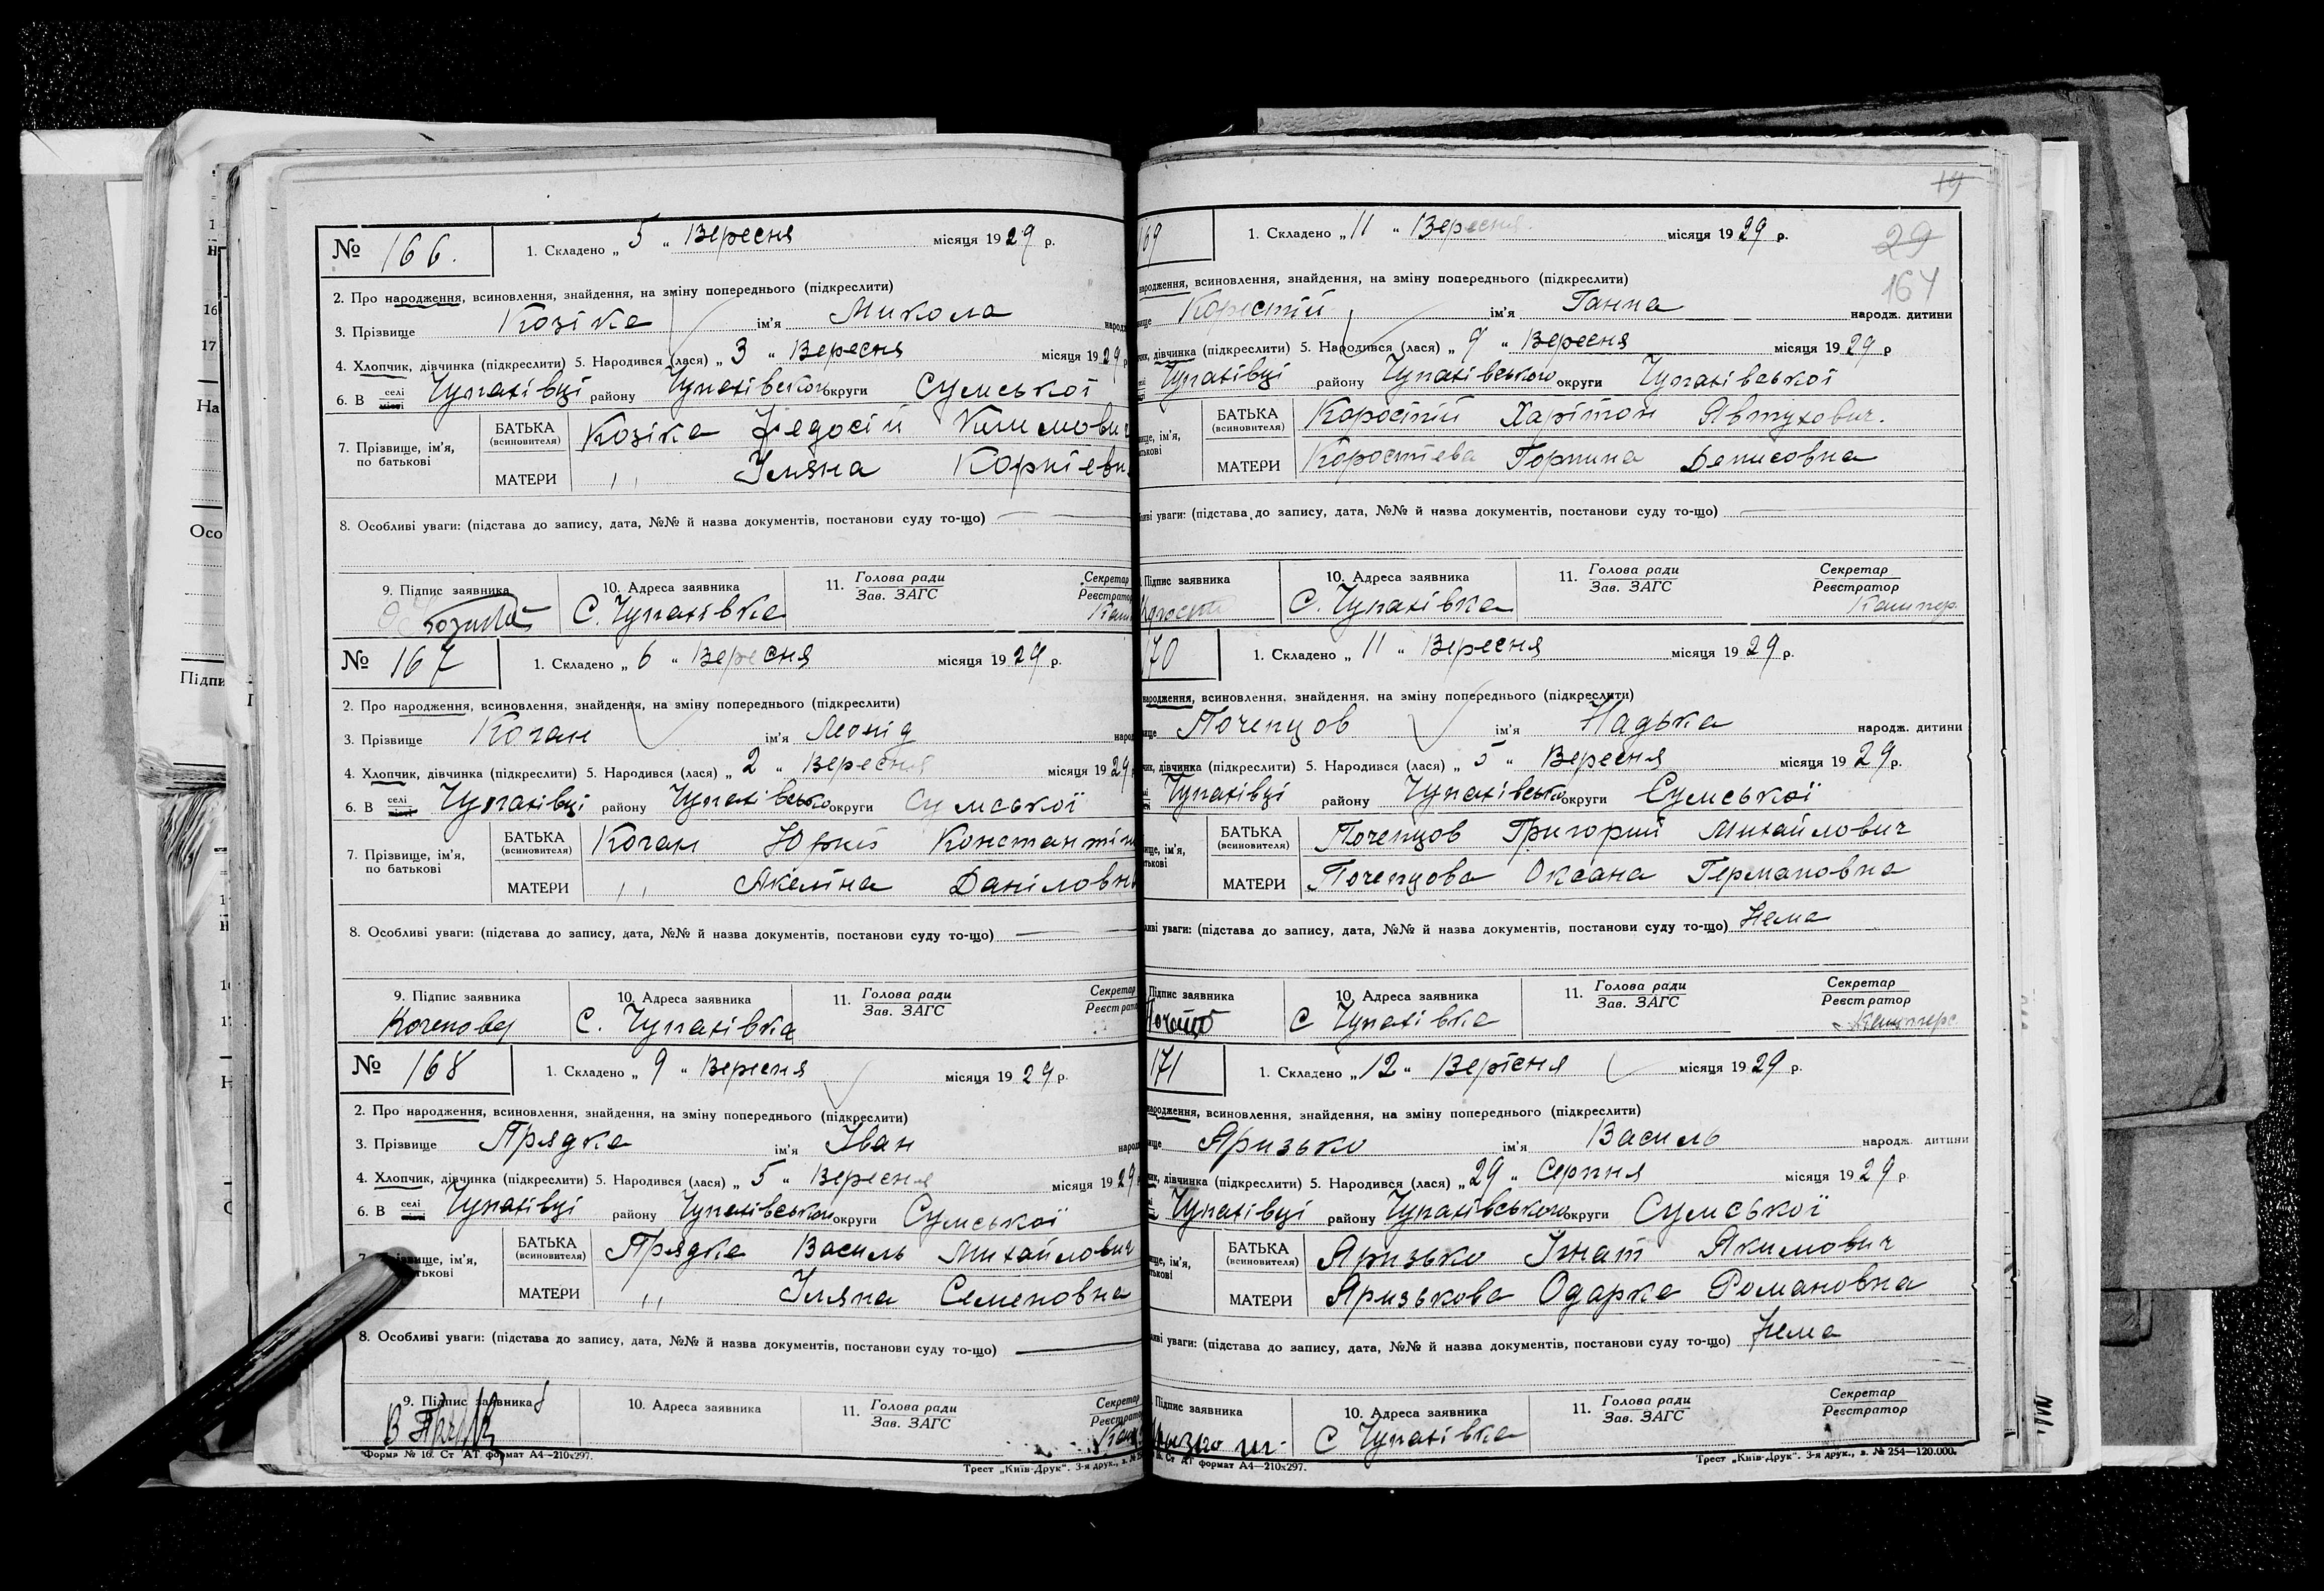 № 166. 1. Складено „ 5 “ Вересня місяця 1929 р.
2. Про народження, всиновлення, знайдення, на зміну попереднього (підкреслити)
3. Прізвище Козіка ім'я Микола народ
4. Хлопчик, дівчинка (підкреслити) 5. Народився (лася) „ 3 “ Вересня місяця 1929 р
6. В селі місті Чупахівці району Чупахівського округи Сумської
7. Прізвище, ім'я, по батькові
БАТЬКА (всиновителя) Козіка Федосій Климович
МАТЕРИ " Уляна Корніевн
8. Особливі уваги: (підстава до запису, дата, №№ й назва документів, постанови суду то-що) —
9. Підпис заявника 10. Адреса заявника 11. Голова ради Зав. ЗАГС Секретар Реєстратор
С. Чупахівка
№ 167 1. Складено „ 6 “ Вересня місяця 1929 р.
2. Про народження, всиновлення, знайдення, на зміну попереднього (підкреслити)
3. Прізвище Коган ім'я Леонід народ
4. Хлопчик, дівчинка (підкреслити) 5. Народився (лася) „ 2 “ Вересня місяця 1929
6. В селі місті Чупахівці району Чупахівсько округи Сумської
7. Прізвище, ім'я, по батькові
БАТЬКА (всиновителя) Коган Юрий Константін
МАТЕРИ " Акеліна Даніловн
8. Особливі уваги: (підстава до запису, дата, №№ й назва документів, постанови суду то-що) —
9. Підпис заявника 10. Адреса заявника 11. Голова ради Зав. ЗАГС Секретар Реєстратор
С. Чупахівка
№ 168 1. Складено „ 9 “ Вересня місяця 1929 р.
2. Про народження, всиновлення, знайдення, на зміну попереднього (підкреслити)
3. Прізвище Прядка ім'я Іван народ
4. Хлопчик, дівчинка (підкреслити) 5. Народився (лася) „ 5 “ Вересня місяця 1929
6. В селі місті Чупахівці району Чупахівського округи Сумської
7. Прізвище, ім'я, батькові
БАТЬКА (всиновителя) Прядка Василь Михайлович
МАТЕРИ " Уляна Семеновна
8. Особливі уваги: (підстава до запису, дата, №№ й назва документів, постанови суду то-що) —
9. Підпис заявника 10. Адреса заявника 11. Голова ради Зав. ЗАГС Секретар Реєстратор
Форма № 16. Ст АТ формат А4—210x297. Трест „Київ-Друк“. 3-я друк., з. №
19
29
164
169 1. Складено „ 11 “ Вересня місяця 1929 р.
народження, всиновлення, знайдення, на зміну попереднього (підкреслити)
Коростій ім'я Ганна народж. дитини
дівчинка (підкреслити) 5. Народився (лася) „ 9 “ Вересня місяця 1929 р
Чупахівці району Чупахівського округи Чупахівської
БАТЬКА (всиновителя) Коростій Харітон Явтухович.
МАТЕРИ Коростіева Горпина Денисовна
уваги: (підстава до запису, дата, №№ й назва документів, постанови суду то-що) —
Підпис заявника 10. Адреса заявника 11. Голова ради Зав. ЗАГС Секретар Реєстратор
С. Чупахівка
170 1. Складено „ 11 “ Вересня місяця 1929 р.
народження, всиновлення, знайдення, на зміну попереднього (підкреслити)
Почепцов ім'я Надька народж. дитини
дівчинка (підкреслити) 5. Народився (лася) „ 5 “ Вересня місяця 1929 р.
Чупахівці району Чупахівсько округи Сумської
БАТЬКА (всиновителя) Почепцов Григорий Михайлович
МАТЕРИ Почепцова Оксана Германовна
уваги: (підстава до запису, дата, №№ й назва документів, постанови суду то-що) Нема
Підпис заявника 10. Адреса заявника 11. Голова ради Зав. ЗАГС Секретар Реєстратор
С Чупахівка
171 1. Складено „ 12 “ Верісня місяця 1929 р.
народження, всиновлення, знайдення, на зміну попереднього (підкреслити)
Яризько ім'я Василь народж. дитини
дівчинка (підкреслити) 5. Народився (лася) „ 29 “ Серпня місяця 1929 р.
Чупахівці району Чупахівського округи Сумської
БАТЬКА (всиновителя) Яризько Ігнат Якимович
МАТЕРИ Яризькова Одарка Романовна
уваги: (підстава до запису, дата, №№ й назва документів, постанови суду то-що) Нема
Підпис заявника 10. Адреса заявника 11. Голова ради Зав. ЗАГС Секретар Реєстратор
С Чупахівка
Ст АТ формат А4—210x297. Трест „Київ-Друк“. 3-я друк., з. № 254—120.000.